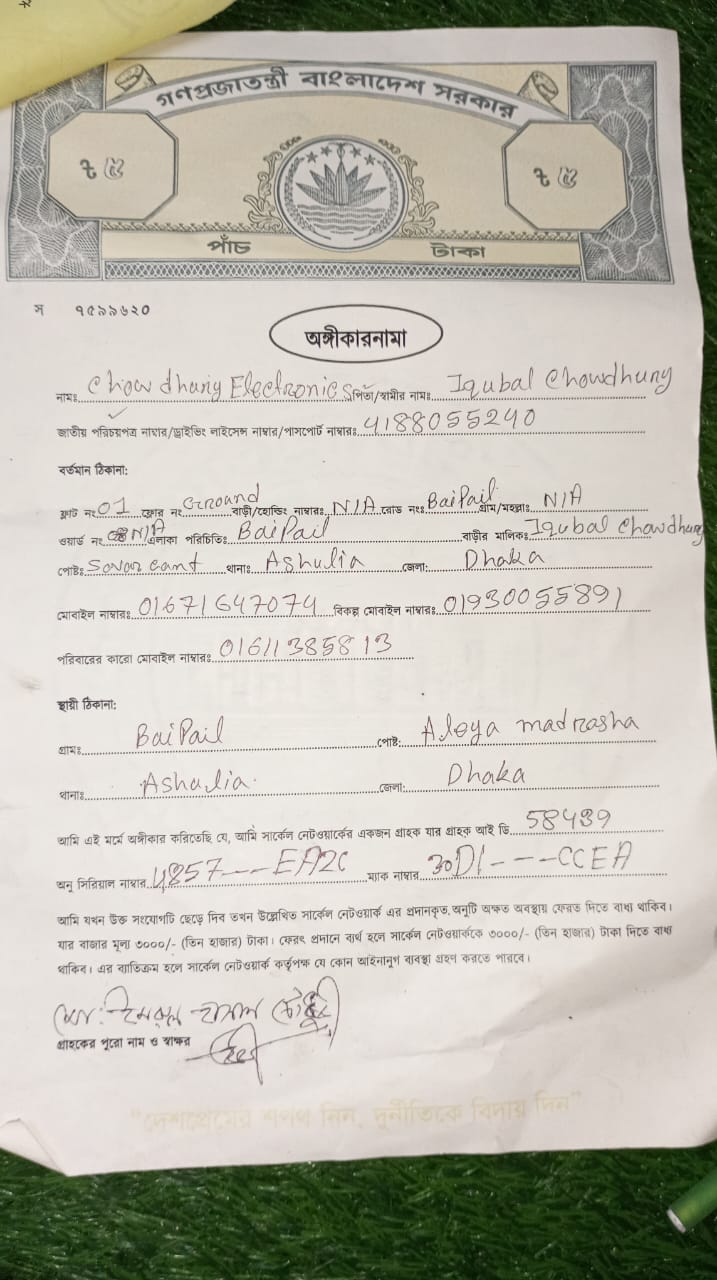 গণপ্রজাতন্ত্রী বাংলাদেশ সরকার
৳ ৫ ৳ ৫
পাঁচ টাকা
স ৭৫৯৯৬২০
অঙ্গীকারনামা
নামঃ Chowdhury Electronics পিতা/স্বামীর নামঃ Iqubal Chowdhury
জাতীয় পরিচয়পত্র নাম্বার/ড্রাইভিং লাইসেন্স নাম্বার/পাসপোর্ট নাম্বারঃ 4188055240
বর্তমান ঠিকানা:
ফ্লাট নং 01 ফ্লোর নং Ground বাড়ী/হোল্ডিং নাম্বারঃ N/A রোড নংঃ BaiPail গ্রাম/মহল্লাঃ N/A
ওয়ার্ড নং N/A এলাকা পরিচিতিঃ BaiPail বাড়ীর মালিকঃ Iqubal Chowdhury
পোষ্টঃ Savar Cant থানাঃ Ashulia জেলা: Dhaka
মোবাইল নাম্বারঃ 01671647074 বিকল্প মোবাইল নাম্বারঃ 01930055891
পরিবারের কারো মোবাইল নাম্বারঃ 01611385813
স্থায়ী ঠিকানা:
গ্রামঃ BaiPail পোষ্ট: Aleya madrasha
থানাঃ Ashulia. জেলা: Dhaka
আমি এই মর্মে অঙ্গীকার করিতেছি যে, আমি সার্কেল নেটওয়ার্কের একজন গ্রাহক যার গ্রাহক আই ডি 58439
অনু সিরিয়াল নাম্বার 4857---EA2C ম্যাক নাম্বার 30D1---CCEA
আমি যখন উক্ত সংযোগটি ছেড়ে দিব তখন উল্লেখিত সার্কেল নেটওয়ার্ক এর প্রদানকৃত অনুটি অক্ষত অবস্থায় ফেরত দিতে বাধ্য থাকিব।
যার বাজার মূল্য ৩০০০/- (তিন হাজার) টাকা। ফেরৎ প্রদানে ব্যর্থ হলে সার্কেল নেটওয়ার্ককে ৩০০০/- (তিন হাজার) টাকা দিতে বাধ্য
থাকিব। এর ব্যতিক্রম হলে সার্কেল নেটওয়ার্ক কর্তৃপক্ষ যে কোন আইনানুগ ব্যবস্থা গ্রহণ করতে পারবে।
মো: চৌধুরী
গ্রাহকের পুরো নাম ও স্বাক্ষর
"দেশপ্রেমের শপথ নিন, দুর্নীতিকে বিদায় দিন"